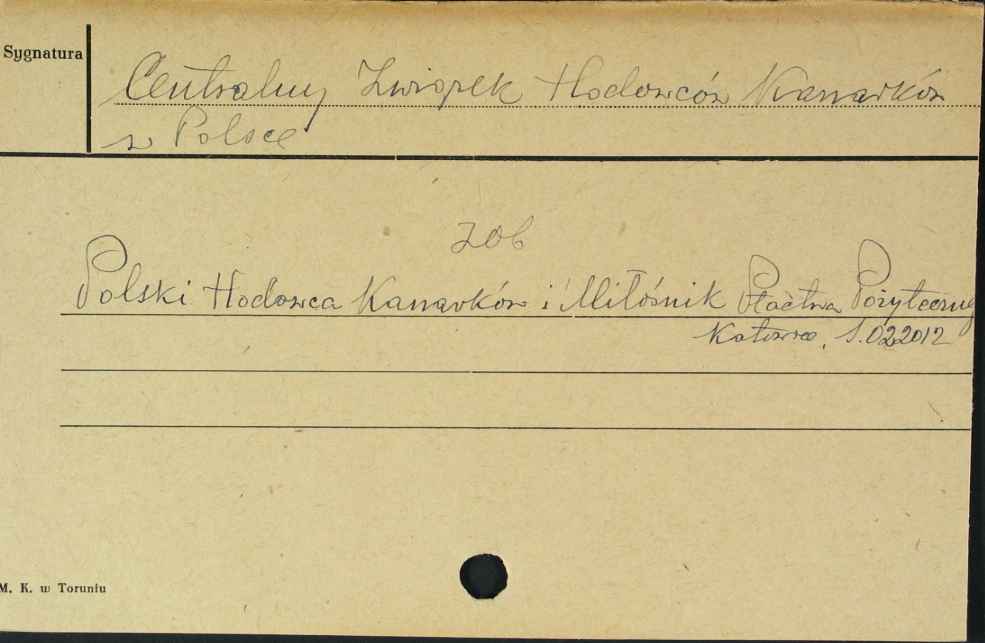 Sygnatura
Centralny Związek Hodowców Kanarków
w Polsce
zob
Polski Hodowca Kanarków i Miłośnik Ptactwa Pożyteczny
Katowice, S.022012
M. K. w Toruniu